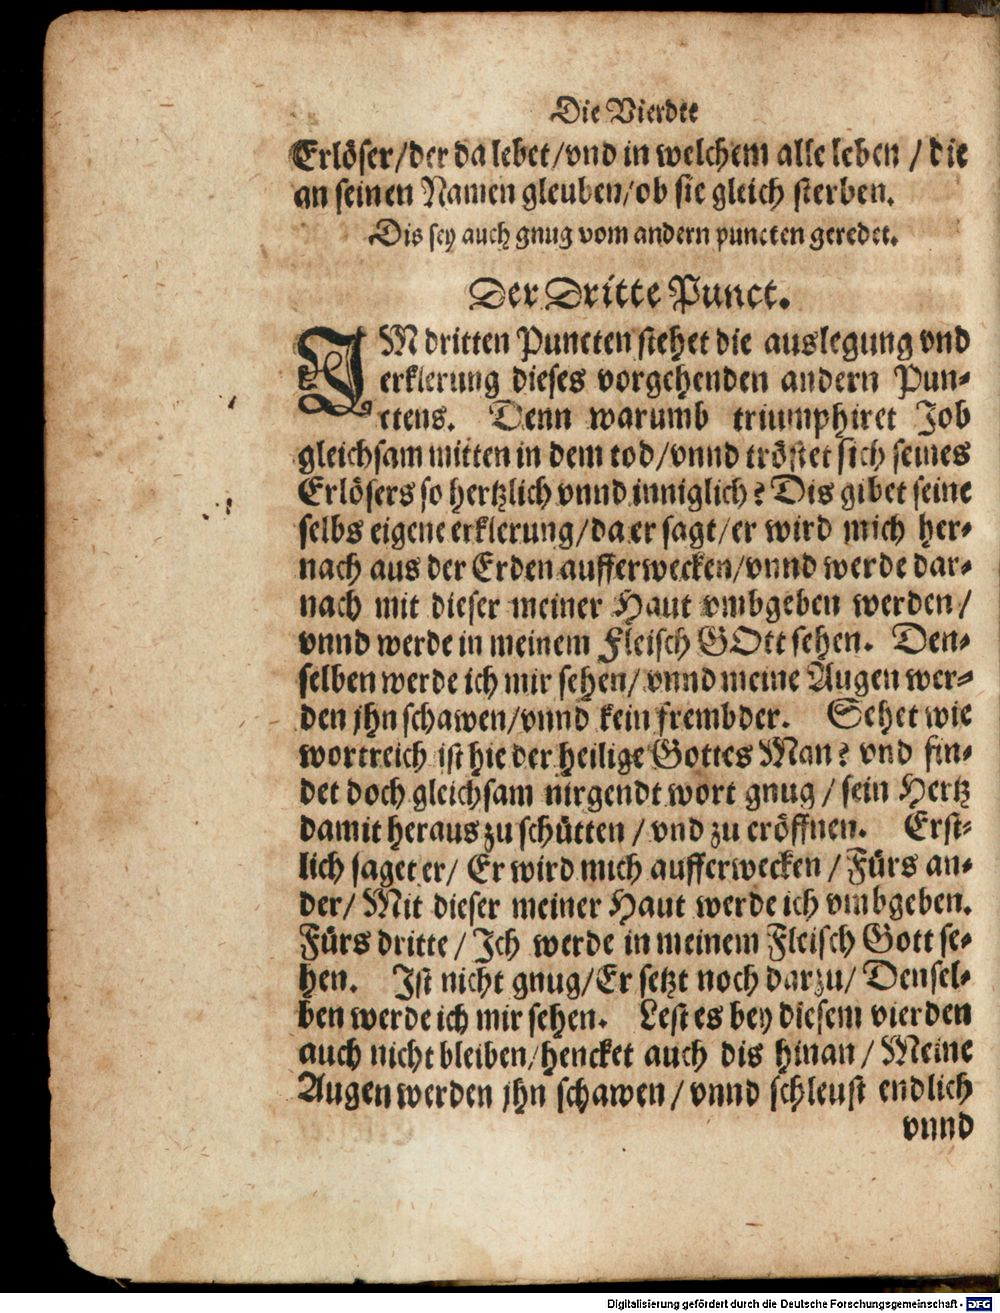 Die Vierdte
Erlöser/der da lebet/vnd in welchem alle leben / die
an seinen Namen gleuben/ob sie gleich sterben.
Dis sey auch gnug vom andern puncten geredet.
Der Dritte Punct.
IM dritten Puncten stehet die auslegung vnd
erklerung dieses vorgehenden andern Pun-
ctens. Denn warumb triumphiret Job
gleichsam mitten in dem tod/vnnd tröstet sich seines
Erlösers so hertzlich vnnd inniglich? Dis gibet seine
selbs eigene erklerung/da er sagt/er wird mich her-
nach aus der Erden aufferwecken/vnnd werde dar-
nach mit dieser meiner Haut vmbgeben werden/
vnnd werde in meinem Fleisch GOtt sehen. Den-
selben werde ich mir sehen/ vnnd meine Augen wer-
den jhn schawen/vnnd kein frembder. Sehet wie
wortreich ist hie der heilige Gottes Man? vnd fin-
det doch gleichsam nirgendt wort gnug / sein Hertz
damit heraus zu schütten / vnd zu eröffnen. Erst-
lich saget er/ Er wird mich aufferwecken / Fürs an-
der/ Mit dieser meiner Haut werde ich vmbgeben.
Fürs dritte / Ich werde in meinem Fleisch Gott se-
hen. Ist nicht gnug/Er setzt noch darzu/ Densel-
ben werde ich mir sehen. Lest es bey diesem vierden
auch nicht bleiben/hencket auch dis hinan / Meine
Augen werden jhn schawen / vnnd schleust endlich
vnnd
Digitalisierung gefördert durch die Deutsche Forschungsgemeinschaft - DFG